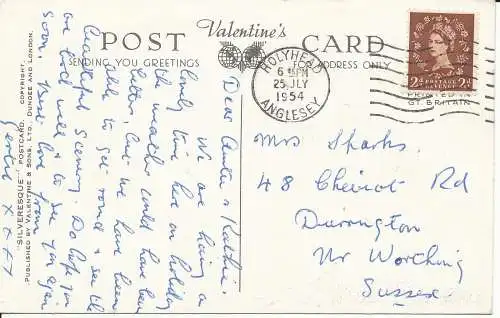 Valentine's
POST CARD
SENDING YOU GREETINGS
FOR ADDRESS ONLY
HOLYHEAD
6 PM
25 JLY
1954
ANGLESEY
POSTAGE REVENUE
2d 2d
PRINTED IN
GT. BRITAIN
"SILVERESQUE" POSTCARD. COPYRIGHT.
PUBLISHED BY VALENTINE & SONS, LTD., DUNDEE AND LONDON.
Dear &
We are having a
lovely time here on holiday
the weather could have been
better, but we have been
able to get round & see the
beautiful scenery. Do hope you
are both well & to see you again
soon. love from
Gertie x x x x
Mrs Sparks.
48 Cheviot Rd
Durrington
Nr Worthing
Sussex